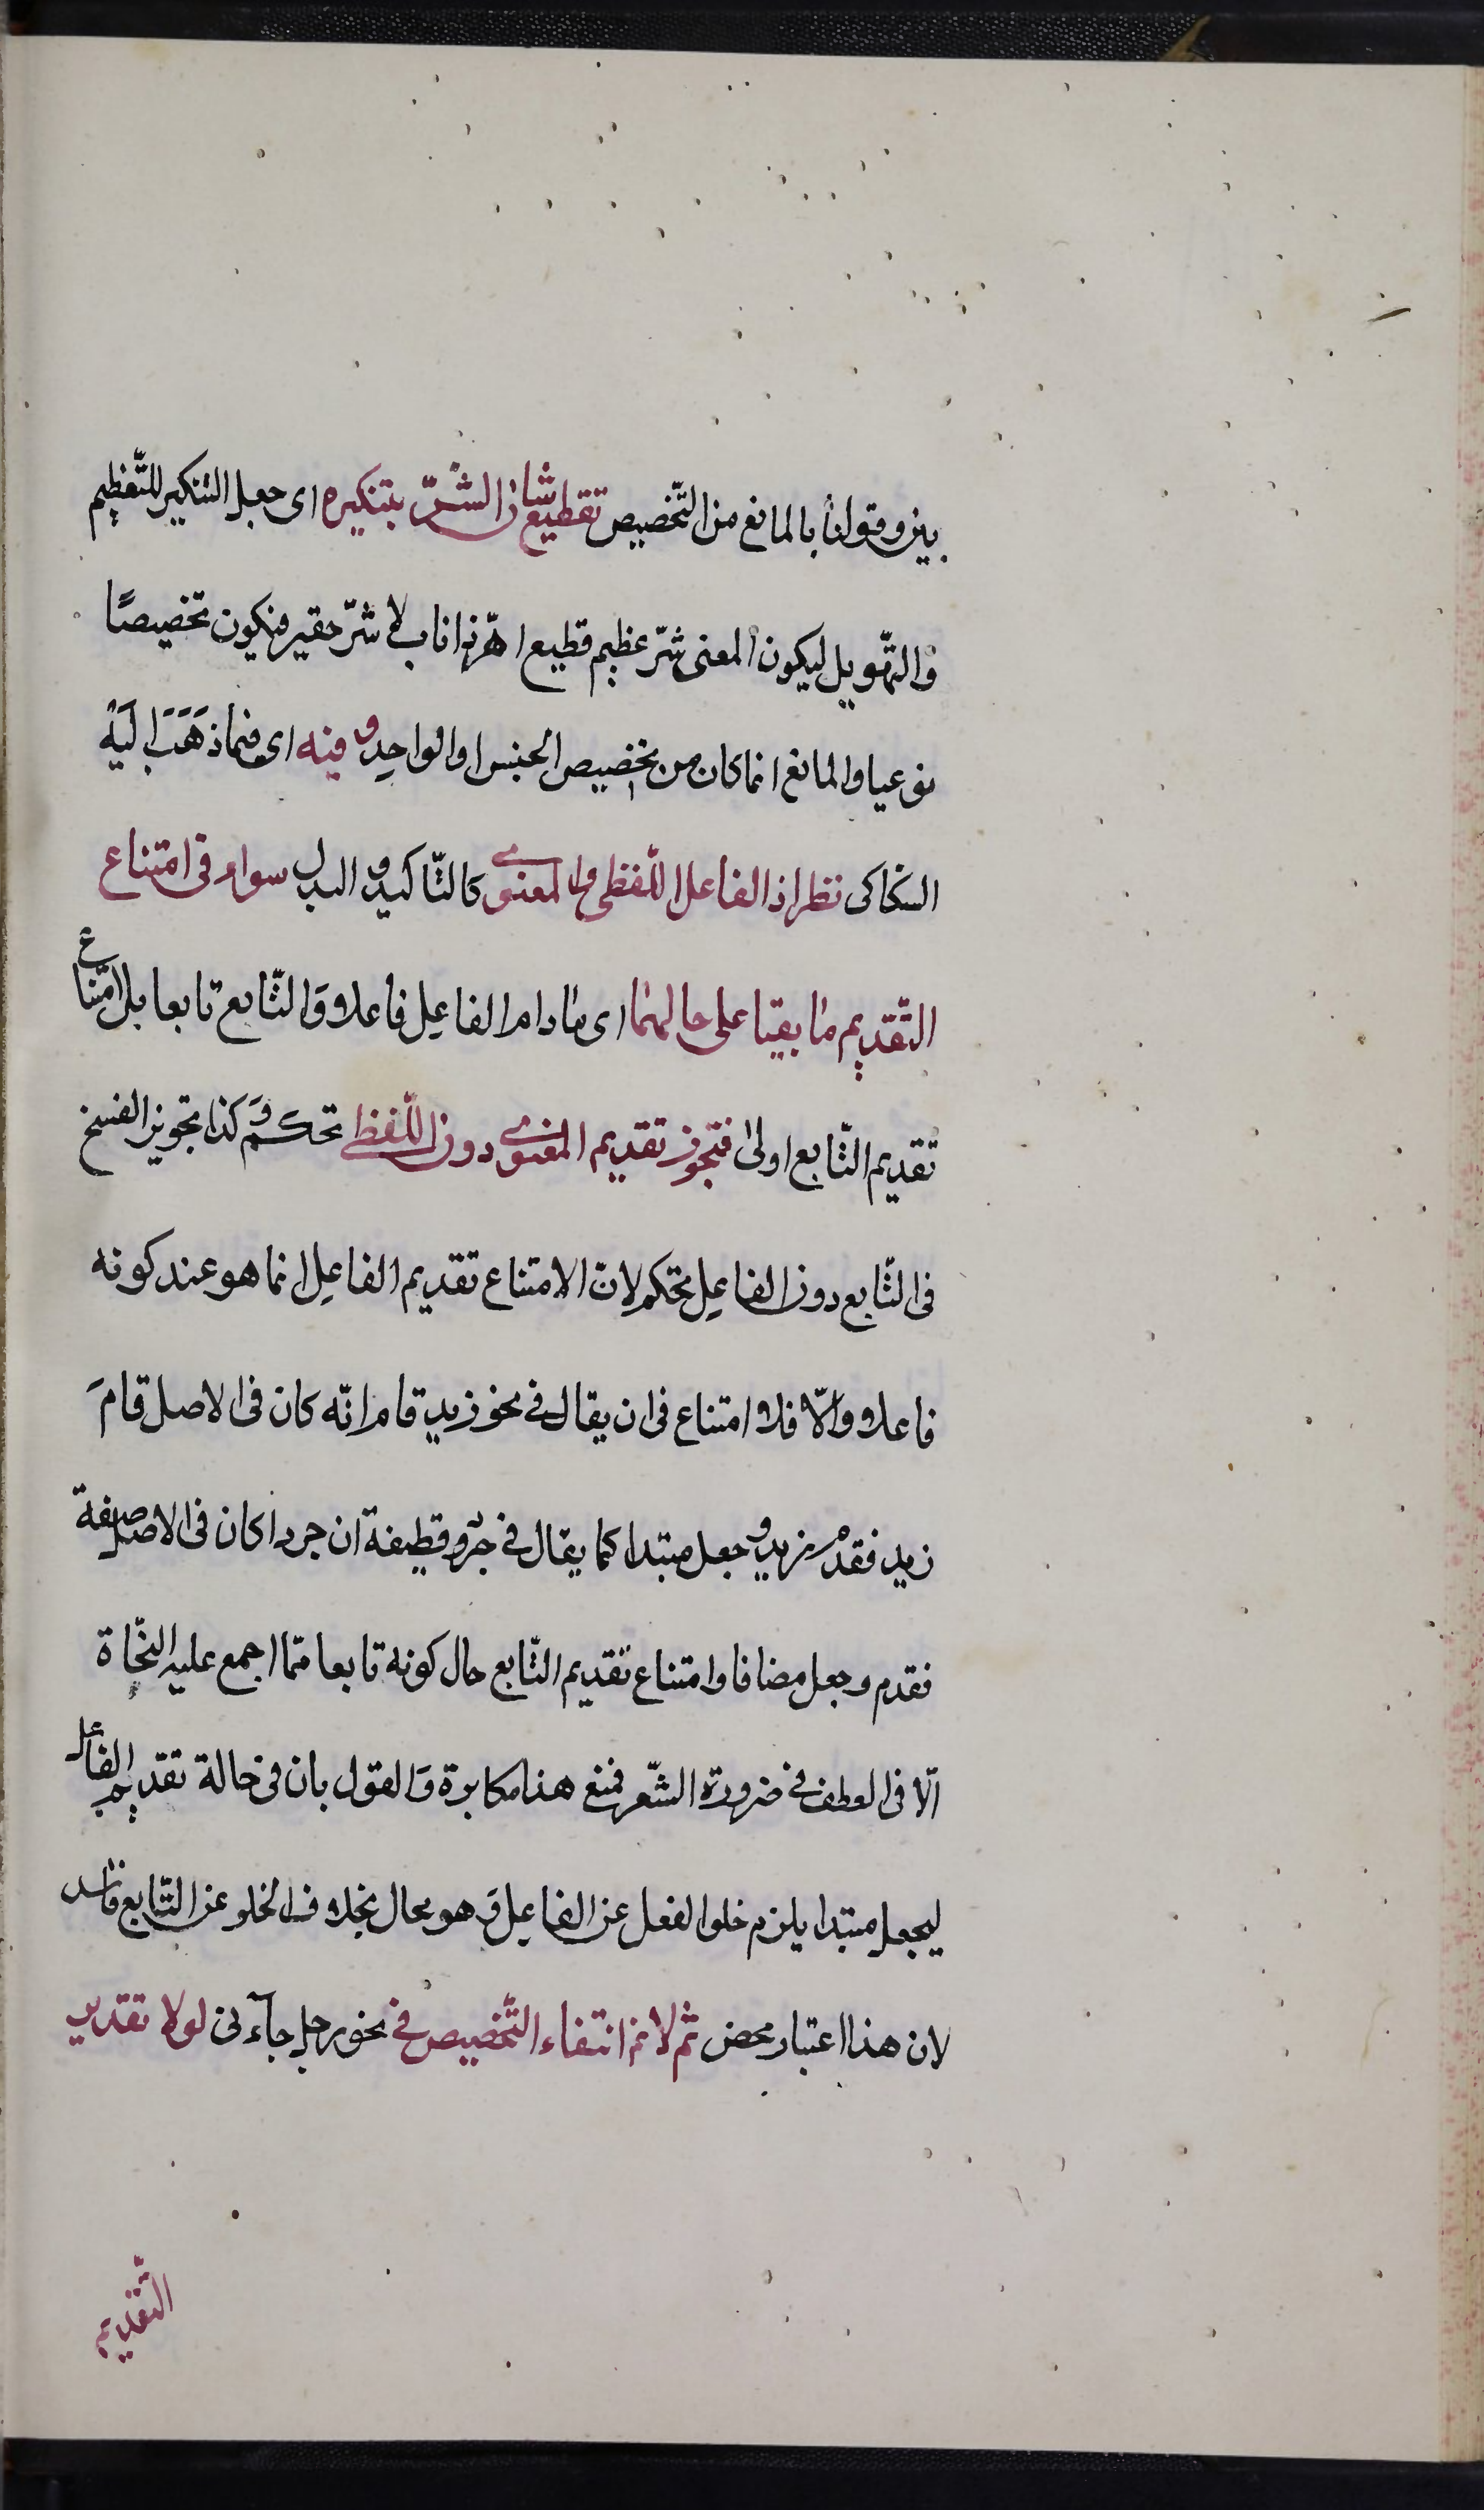 بين وقولنا بالمانع من التّخصيص تقطيع شان الشّرّ بتنكيره اى جعل التنكير للتّعظيم
والتّهويل ليكون المعنى شرّ عظيم قطيع اهرّ ذا ناب لا شرّ حقير فيكون تخصيصًا
نوعيا والمانع انما كان من تخصيص الجنس او الواحد وفيه اى فيما ذَهَبَ اليَه
السّكاكى نظر اذ الفاعل اللّفظى والمعنوى كالتّاكيد والبدل سواء فى امتناع
التّقديم ما بقيا على حالهما اى ما دام الفاعِل فاعلا وَالتّابع تابعا بل امتناع
تقديم التّابع اولى فتجوز تقديم المعنوى دون اللّفظى تحكم وَكذا تجويز الفسخ
فى التّابع دون الفاعِل تحكم لانّ الامتناع تقديم الفاعِل انما هو عند كونه
فاعلا والّا فلا امتناع فى ان يقال فى نحو زيد قام انّه كان فى الاصل قامَ
زيد فقدم زيد وجعل مبتدا كما يقال فى جرد قطيفة ان جردا كان فى الاصل صفة
فقدم وجعل مضافا وامتناع تقديم التّابع حال كونه تابعا ممّا اجمع عليه النّحاة
الّا فى العطف فى ضرورة الشّعر فمنع هذا مكابرة وَالقول بان فى حالة تقديم الفاعل
ليجعل مبتدا يلزم خلو الفعل عن الفاعِل وَهو محال بخلاف الخلو عن التّابع فاسد
لان هذا اعتبار محض ثم لا نم انتفاء التّخصيص فى نحو رجل جآءنى لولا تقدير
التّقديم